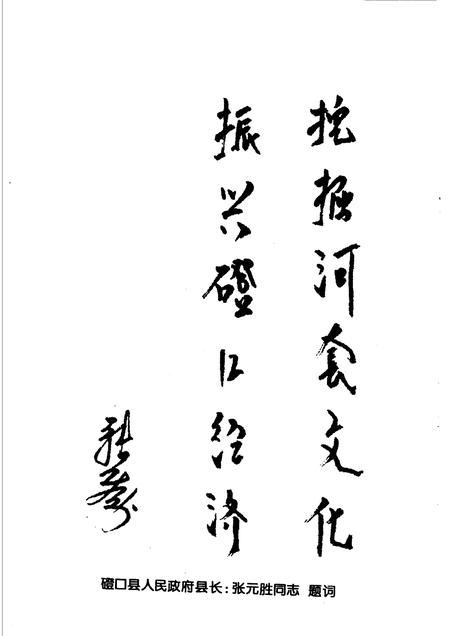 挖掘河套文化
振兴磴口经济
磴口县人民政府县长：张元胜同志 题词